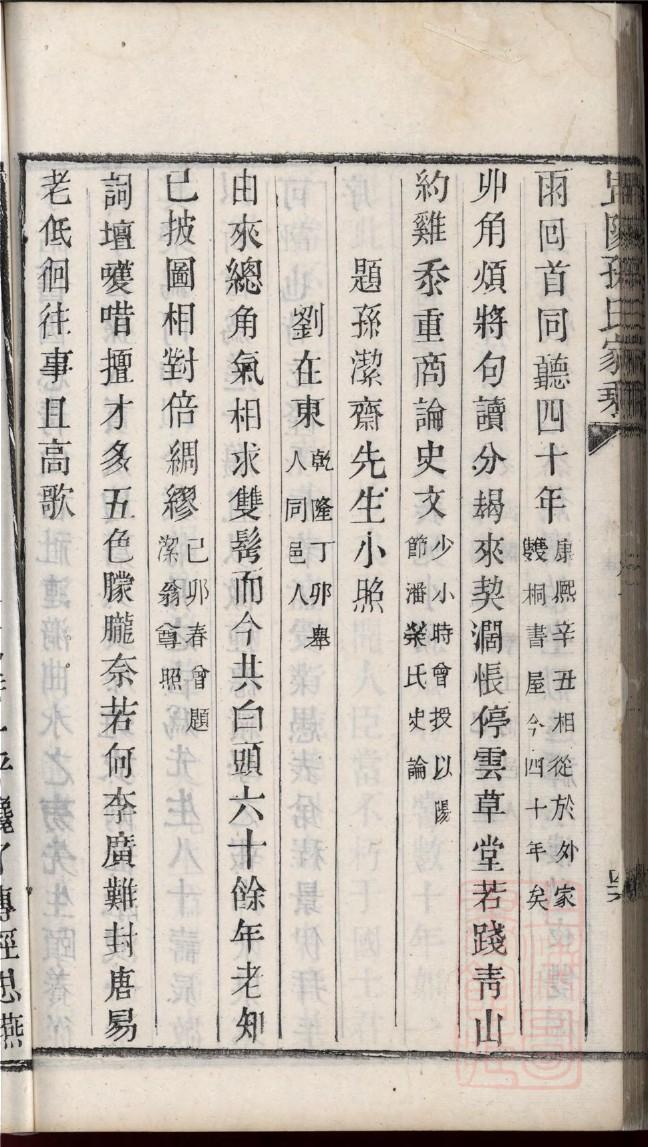 孫氏家乘
雨回首同聽四十年康熙辛丑相從於外家雙桐書屋今四十年矣
丱角煩將句讀分朅來契濶悵停雲草堂若踐靑山
約雞黍重商論史文少小時曾授以陽節潘榮氏史論
題孫潔齋先生小照
劉在東乾隆丁卯舉人同邑人
由來總角氣相求雙髩而今共白頭六十餘年老知
已披圖相對倍綢繆已卯春曾題潔翁尊照
詞壇嘆唶擅才多五色朦朧奈若何李廣難封唐易
老低徊往事且高歌